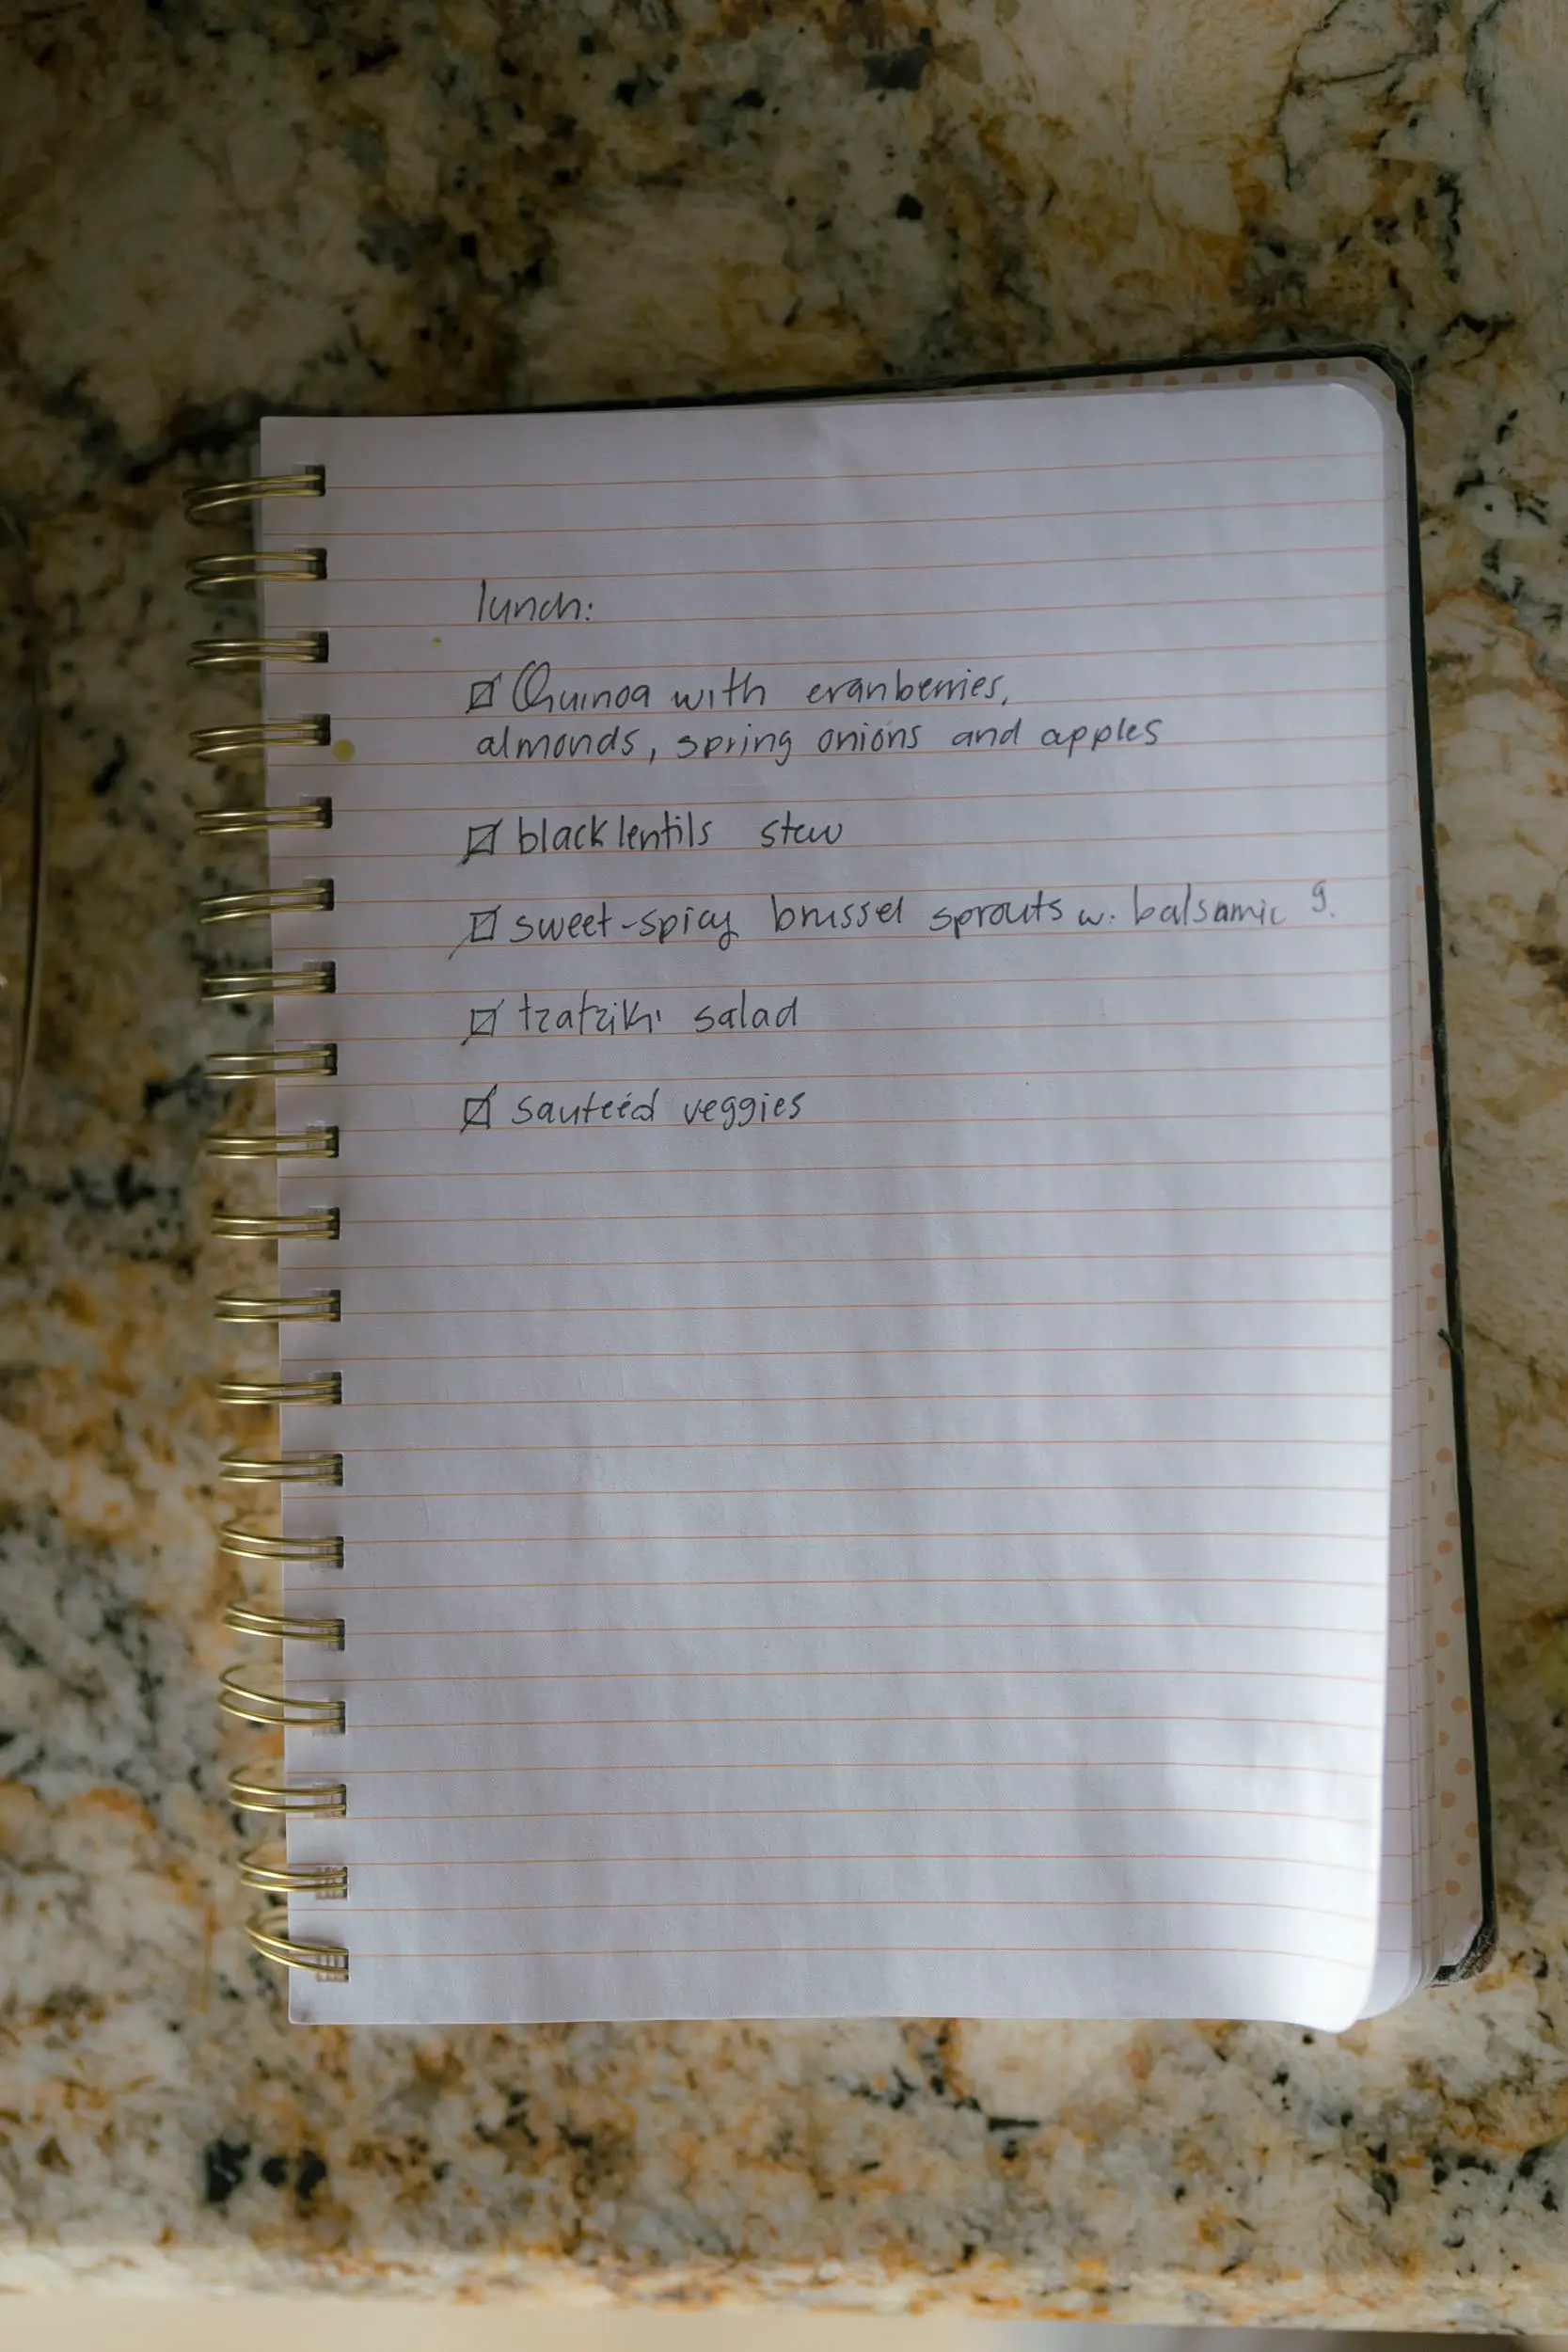 lunch:
☑ Quinoa with cranberries,
almonds, spring onions and apples
☑ black lentils stew
☑ sweet-spicy brussel sprouts w. balsamic g.
☑ tzatziki salad
☑ sauteéd veggies